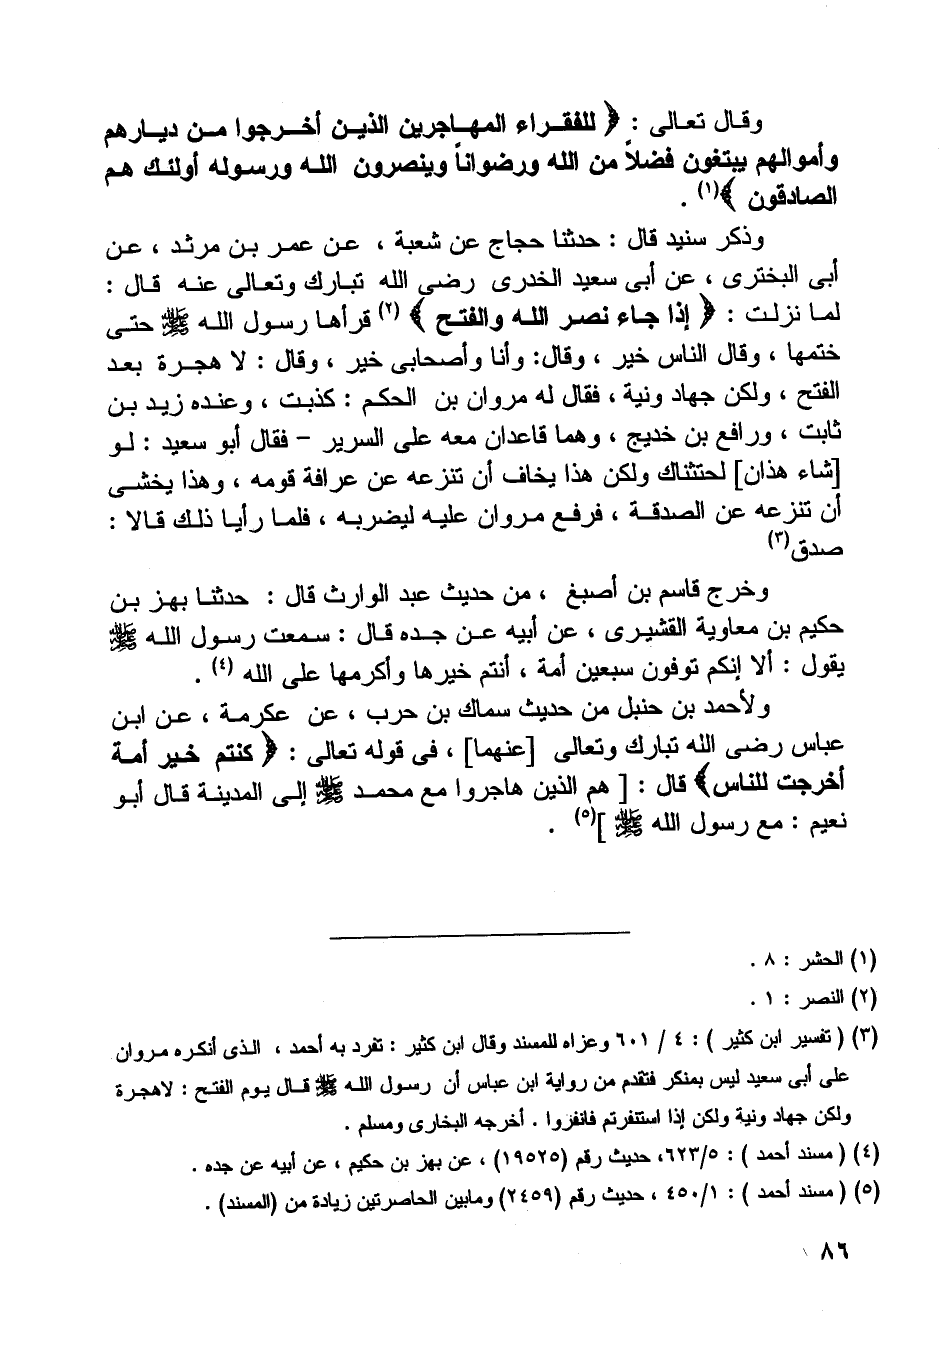 وقال تعالى : ﴿ للفقراء المهاجرين الذين أخرجوا من ديارهم
وأموالهم يبتغون فضلاً من الله ورضواناً وينصرون الله ورسوله أولئك هم
الصادقون ﴾(١) .
وذكر سنيد قال : حدثنا حجاج عن شعبة ، عن عمر بن مرثد ، عن
أبى البخترى ، عن أبى سعيد الخدرى رضى الله تبارك وتعالى عنه قال :
لما نزلت : ﴿ إذا جاء نصر الله والفتح ﴾ (٢) قرأها رسول الله ﷺ حتى
ختمها ، وقال الناس خير ، وقال: وأنا وأصحابى خير ، وقال : لا هجرة بعد
الفتح ، ولكن جهاد ونية ، فقال له مروان بن الحكم : كذبت ، وعنده زيد بن
ثابت ، ورافع بن خديج ، وهما قاعدان معه على السرير – فقال أبو سعيد : لو
[شاء هذان] لحتثناك ولكن هذا يخاف أن تنزعه عن عرافة قومه ، وهذا يخشى
أن تنزعه عن الصدقة ، فرفع مروان عليه ليضربه ، فلما رأيا ذلك قالا :
صدق(٣)
وخرج قاسم بن أصبغ ، من حديث عبد الوارث قال : حدثنا بهز بن
حكيم بن معاوية القشيرى ، عن أبيه عن جده قال : سمعت رسول الله ﷺ
يقول : ألا إنكم توفون سبعين أمة ، أنتم خيرها وأكرمها على الله (٤) .
ولأحمد بن حنبل من حديث سماك بن حرب ، عن عكرمة ، عن ابن
عباس رضى الله تبارك وتعالى [عنهما] ، فى قوله تعالى : ﴿ كنتم خير أمة
أخرجت للناس﴾ قال : [ هم الذين هاجروا مع محمد ﷺ إلى المدينة قال أبو
نعيم : مع رسول الله ﷺ ](٥) .
(١) الحشر : ٨ .
(٢) النصر : ١ .
(٣) ( تفسير ابن كثير ) : ٤ / ٦٠١ وعزاه للمسند وقال ابن كثير : تفرد به أحمد ، الذى أنكره مروان
على أبى سعيد ليس بمنكر فتقدم من رواية ابن عباس أن رسول الله ﷺ قال يوم الفتح : لاهجرة
ولكن جهاد ونية ولكن إذا استنفرتم فانفزوا . أخرجه البخارى ومسلم .
(٤) ( مسند أحمد ) : ٦٢٣/٥، حديث رقم (١٩٥٢٥) ، عن بهز بن حكيم ، عن أبيه عن جده .
(٥) ( مسند أحمد ) : ٤٥٠/١ ، حديث رقم (٢٤٥٩) ومابين الحاصرتين زيادة من (المسند) .
٨٦